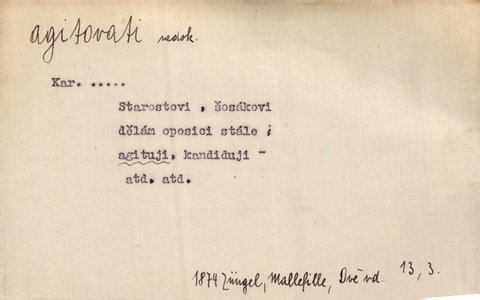 agitovati nedok.
Kar. .....
Starostovi , šosákovi
dělám oposici stále ;
agituji, kandiduji -
atd. atd.
1874 Züngel, Mallefille, Dvě vd. 13, 3.